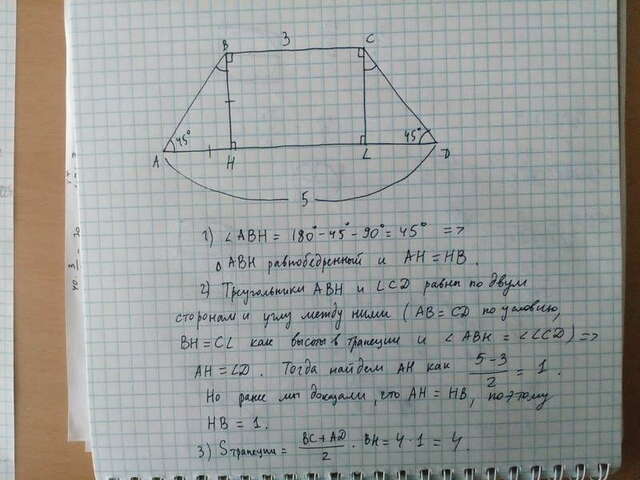 3
B C
45° 45°
A H L D
5
1) ∠ABH = 180° - 45° - 90° = 45° =>
△ ABH равнобедренный и AH = HB.
2) Треугольники ABH и LCD равны по двум
сторонам и углу между ними (AB = CD по условию,
BH = CL как высоты в трапеции и ∠ABH = ∠LCD) =>
AH = LD. Тогда найдем AH как (5-3)/2 = 1.
Но ранее мы доказали, что AH = HB, поэтому
HB = 1.
3) Sтрапеции = (BC + AD)/2 · BH = 4 · 1 = 4.